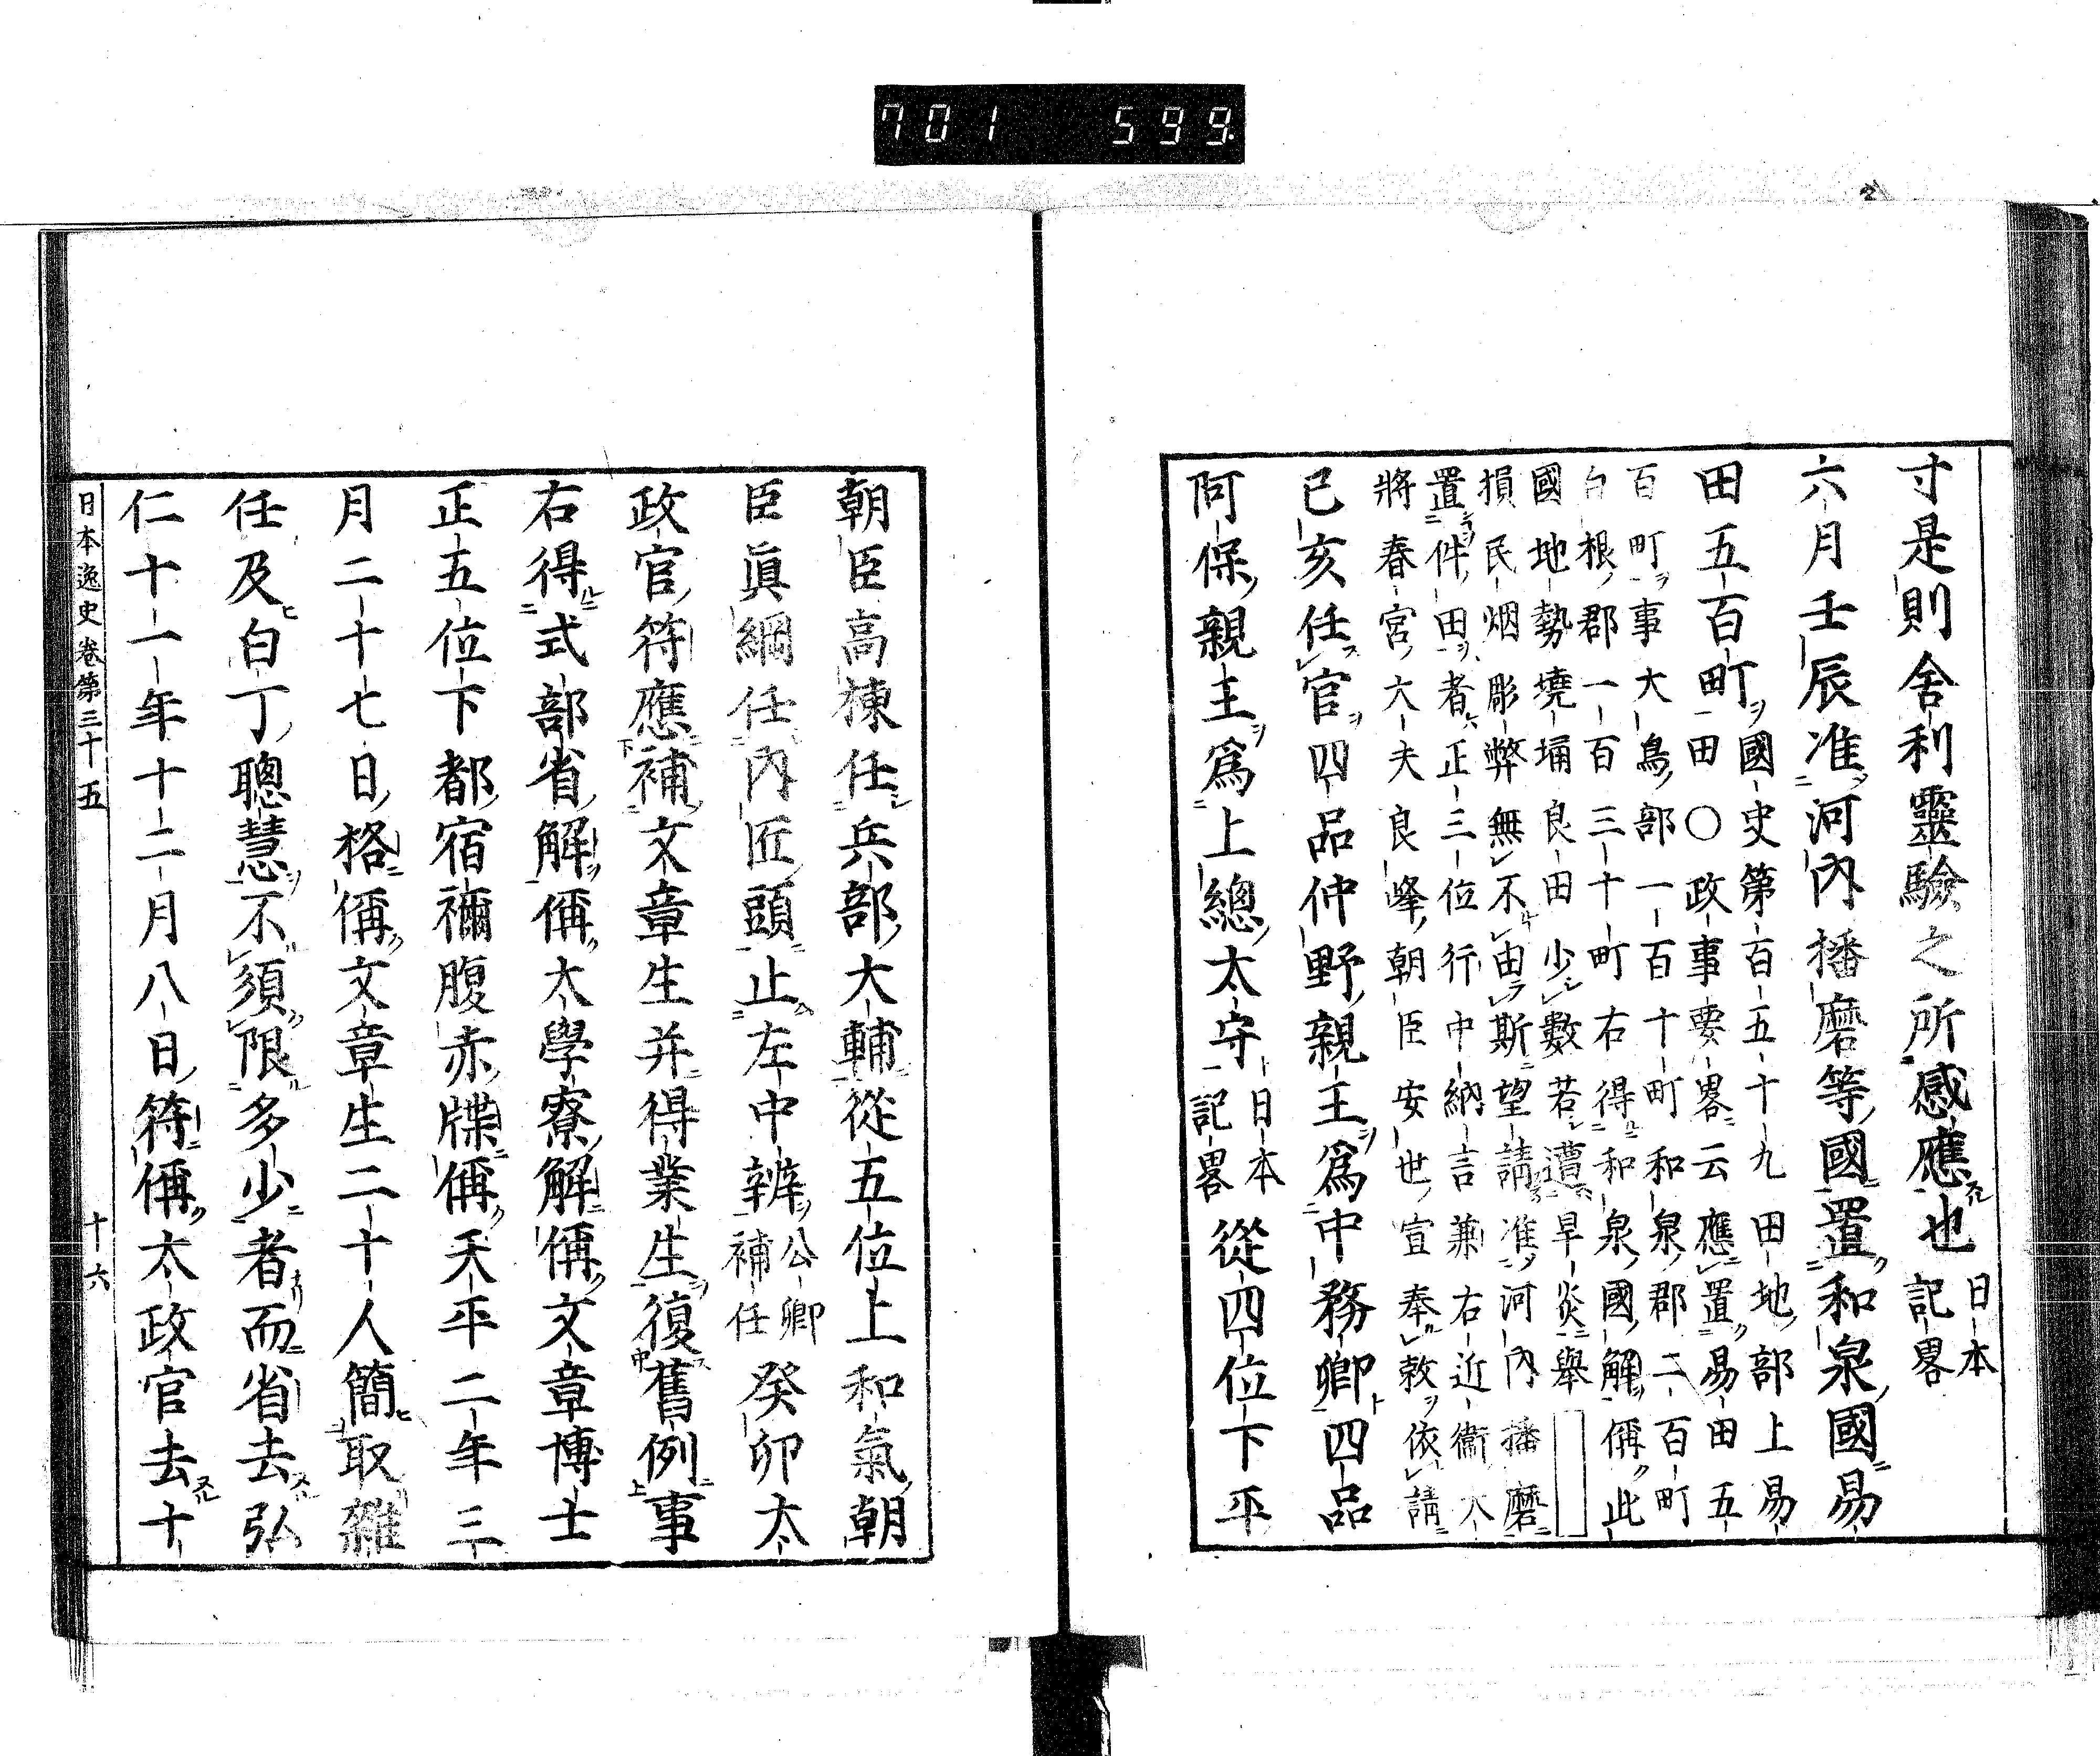 701 599
寸是則舍利靈驗之所感應也日本記畧
六月壬辰准河内播磨等國置和泉國易
田五百町國史第百五十九田地部上易
田〇政事要畧云應置易田五
百町事大鳥部一百十町和泉郡二百町
白根郡一百三十町右得和泉國解偁此
國地勢墝埆良田少數若遭旱炎舉
損民烟彫弊無不由斯望請准河内播磨
置件田者正三位行中納言兼右近衞大
將春宮大夫良峰朝臣安世宣奉敕依請
已亥任官四品仲野親王爲中務卿四品
阿保親王爲上總太守日本記畧從四位下平
朝臣高棟任兵部大輔從五位上和氣朝
臣眞綱任内匠頭止左中辨公卿補任癸卯太
政官符應補文章生并得業生復舊例事
右得式部省解偁大學寮解偁文章博士
正五位下都宿禰腹赤牒偁天平二年三
月二十七日格偁文章生二十人簡取雜
任及白丁聰慧不須限多少者而省去弘
仁十一年十二月八日符偁太政官去十
日本逸史卷第三十五
十六